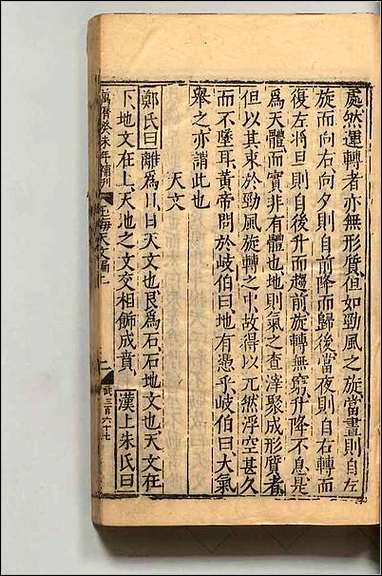 處然運轉者亦無形質但如勁風之旋當晝則自左
旋而向右向夕則自前降而歸後當夜則自右轉而
復左將旦則自後升而趨前旋轉無窮升降不息是
爲天體而實非有體也地則氣之查滓聚成形質者
但以其束於勁風旋轉之中故得以兀然浮空甚久
而不墜耳黃帝問於岐伯曰地有憑乎岐伯曰大氣
舉之亦謂此也
天文
鄭氏曰離爲日日天文也艮爲石石地文也天文在
下地文在上天地之文交相飾成賁漢上朱氏曰
萬曆癸未年補刊
玉海天文編上
二
武三百六十七